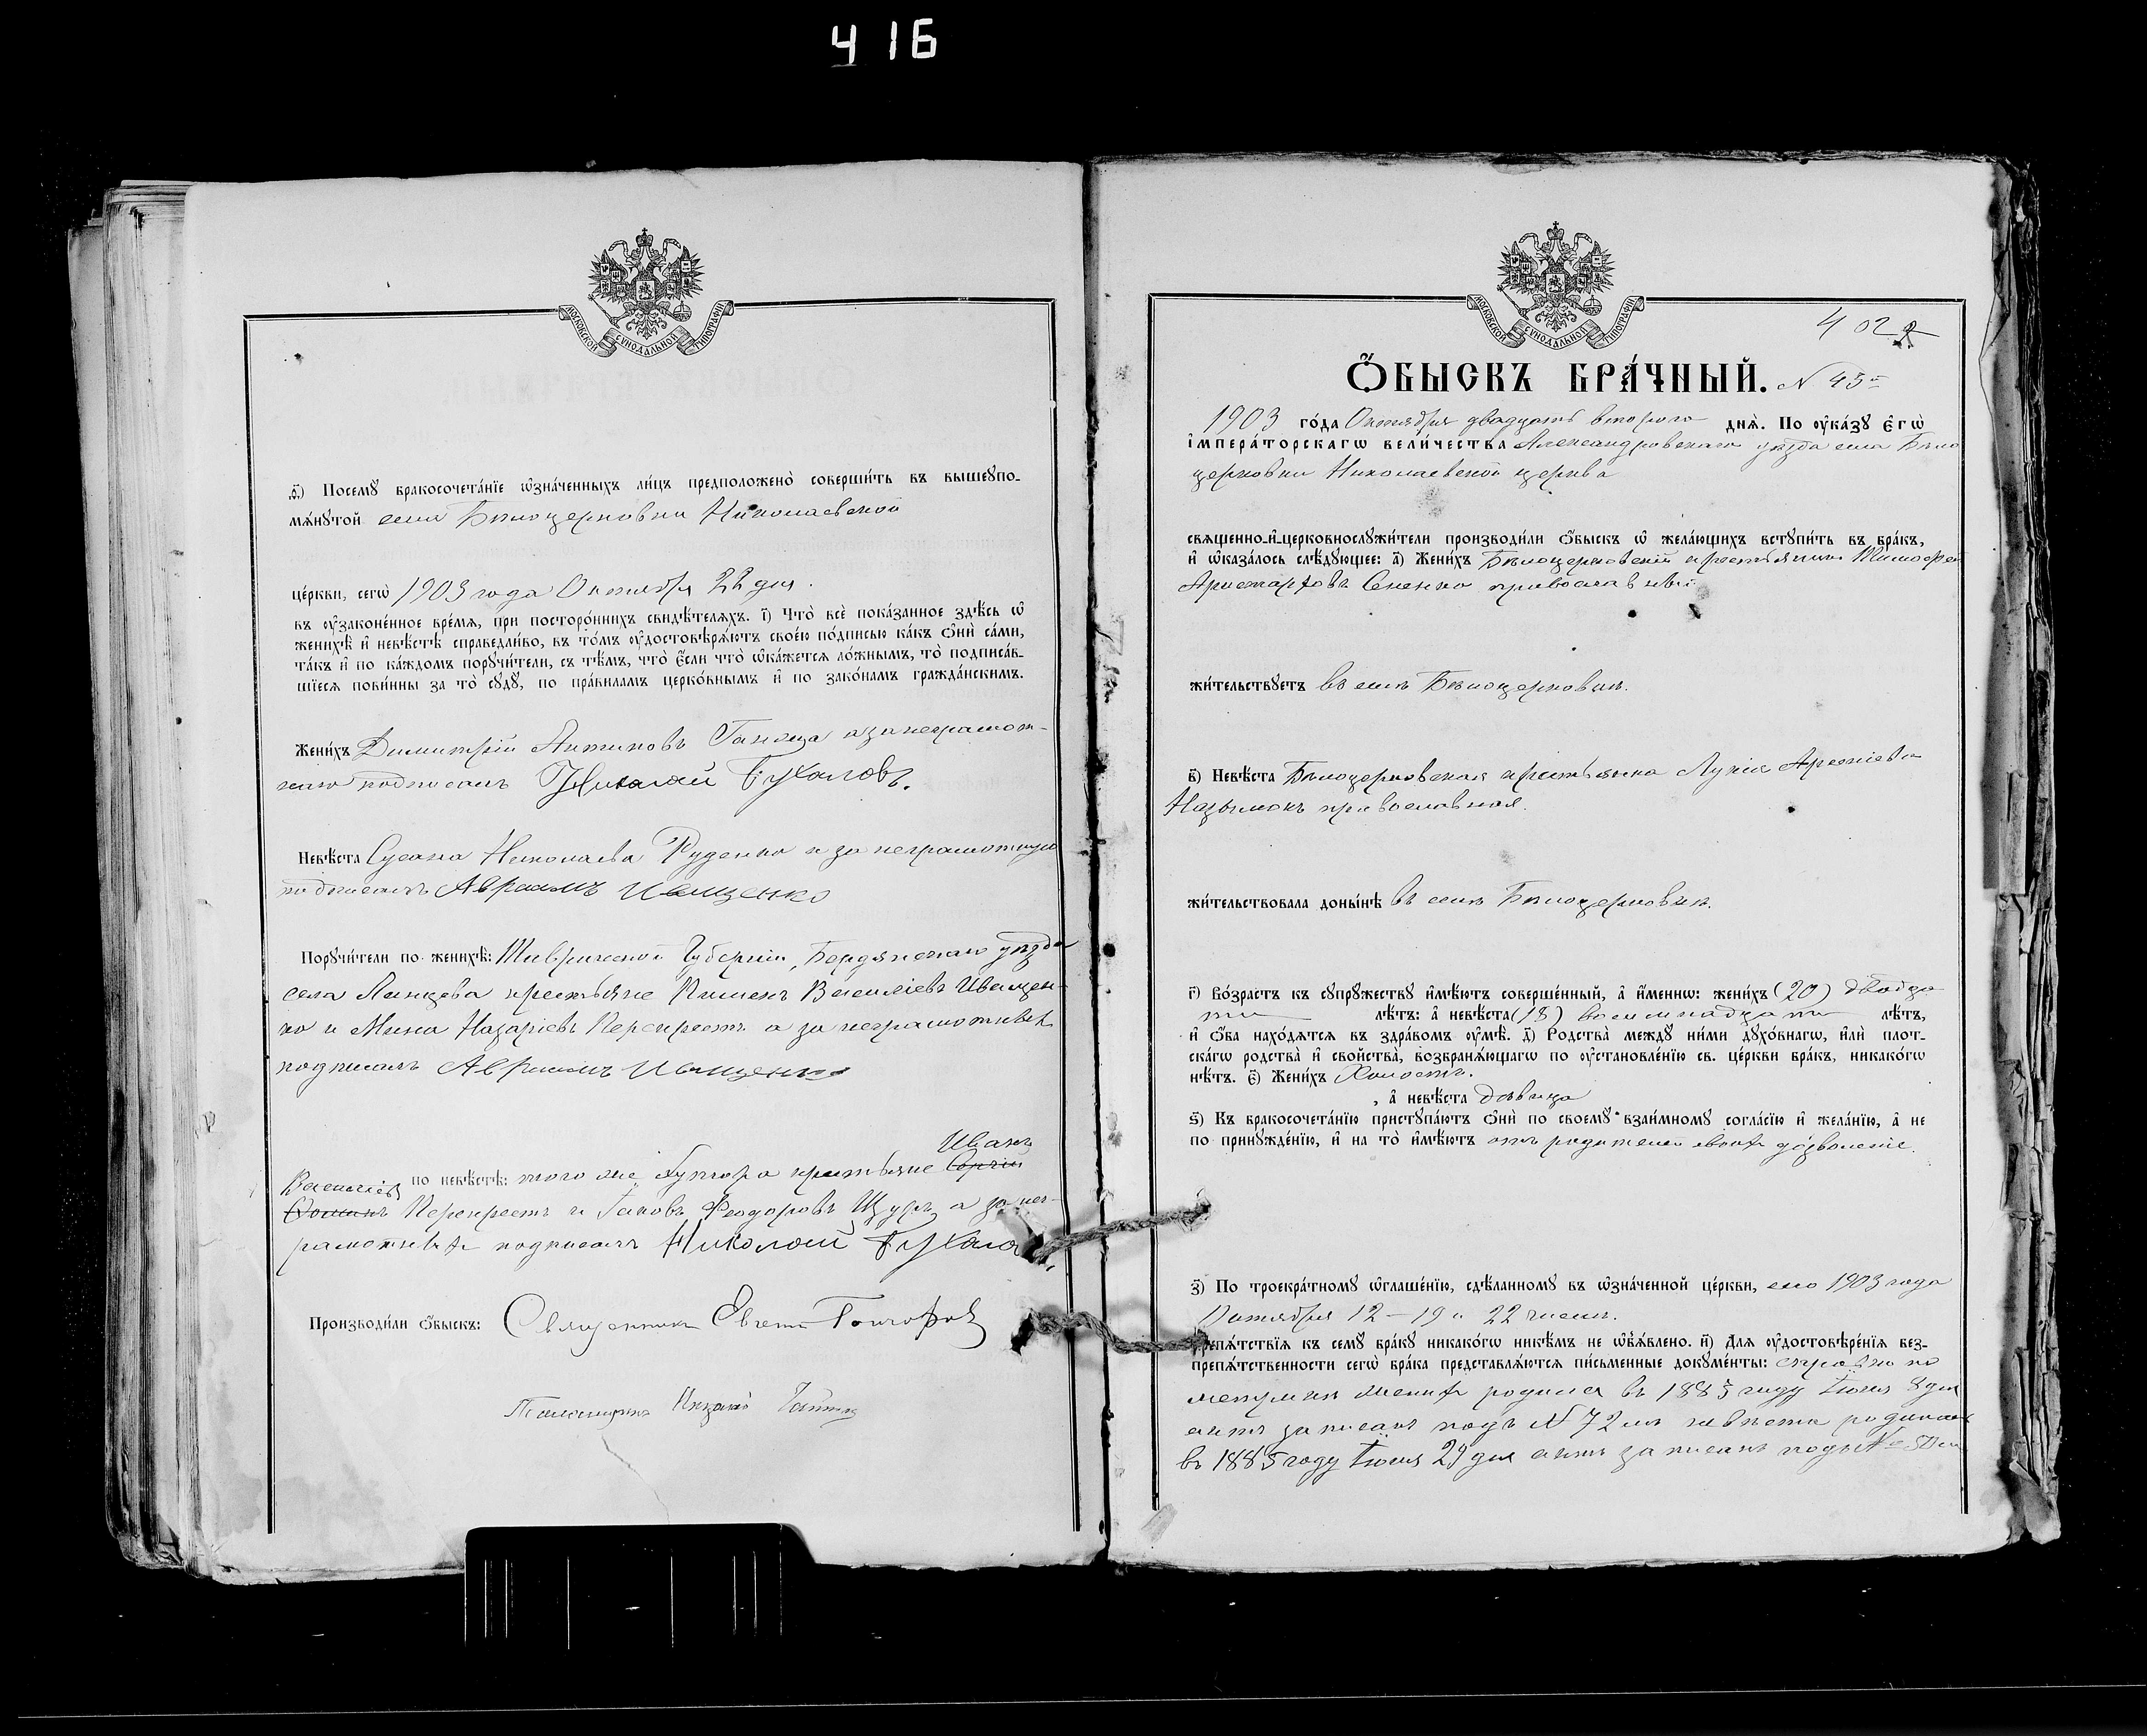 416
МОСКОВСКОЙ СѴНОДАЛЬНОЙ ТИПОГРАФІИ
ѳ҃) Посемꙋ бракосочета́нїе ѡ҆зна́ченныхъ ли́цъ предположено̀ соверши́ть въ вышеꙋпо-
мѧ́нꙋтой села Бѣлоцерковки Николаевской
це́ркви, сегѡ̀ 1903 года Октября 22 дня.
въ ᲂу҆законе́нное вре́мѧ, при посторо́ннихъ свидѣ́телѧхъ. і҃) Что̀ всѐ пока́занное здѣ́сь ѡ҆
женихѣ̀ и҆ невѣ́стѣ справедли́во, въ то́мъ ᲂу҆достовѣрѧ́ютъ свое́ю по́дписью ка́къ ѻ҆нѝ са́ми,
та́къ и҆ по ка́ждомъ порꙋчи́тели, съ тѣ́мъ, что̀ є҆́сли что̀ ѡ҆ка́жетсѧ ло́жнымъ, то̀ подписа́в-
шїесѧ пови́нны за то̀ сꙋдꙋ̀, по пра́виламъ церко́внымъ и҆ по зако́намъ гражда́нскимъ.
Жени́хъ Димитрій Антиповъ а за неграмот-
наго подписалъ Николай Бухаловъ.
Невѣ́ста Сусана Николаева Руденко а за неграмотную
подписалъ Авраамъ Иващенко
Порꙋчи́тели по женихѣ̀: Таврической Губерніи, Бердянскаго уѣзда
села крестьяне Пименъ Василіевъ Иващен-
ко и Мина Назаріевъ Перекрестъ а за неграмотныхъ
подписалъ Авраамъ Иващенко
Иванъ
по невѣ́стѣ: того же хутора крестьяне Сергій
Василіевъ
Перекрестъ и Іаковъ Феодоровъ Щуръ, а за нег-
рамотныхъ подписалъ Николай Бухало
Производи́ли ѻ҆́быскъ: Священникъ Евгеній
Псаломщикъ
402
Ѻ҆́БЫСКЪ БРА́ЧНЫЙ. N 45й
1903 го́да Октября двадцать второго днѧ̀. По ᲂу҆ка́зꙋ Є҆гѡ̀
і҆мпера́торскагѡ вели́чества Александровскаго уѣзда села Бѣло
церковки Николаевской церкви
свѧщенно-и҆-церковнослꙋжи́тели производи́ли ѻ҆́быскъ ѡ҆ жела́ющихъ встꙋпи́ть въ бра́къ,
и҆ ѡ҆каза́лось слѣ́дꙋющее: а҃) Жени́хъ Бѣлоцерковскій крестьянинъ Тимофей
Аристарховъ Сененко православный
жи́тельствꙋетъ въ селѣ Бѣлоцерковкѣ.
в҃) Невѣ́ста Бѣлоцерковская крестьянка Лукія Арсеніева
православная.
жи́тельствовала доны́нѣ въ селѣ Бѣлоцерковкѣ.
г҃) Во́зрастъ къ сꙋпрꙋ́жествꙋ и҆мѣ́ютъ соверше́нный, а҆ и҆́меннѡ: жени́хъ (20) двадца
ти лѣ́тъ: а҆ невѣ́ста (18) восемнадцати лѣ́тъ,
и҆ ѻ҆́ба нахо́дѧтсѧ въ здра́вомъ ᲂу҆мѣ̀. д҃) Родства̀ междꙋ ни́ми дꙋхо́внагѡ, и҆лѝ плот-
ска́гѡ родства̀ и҆ свойства̀, возбранѧ́ющагѡ по ᲂу҆становле́нїю св. це́ркви бра́къ, никако́гѡ
нѣ́тъ. є҃) Жени́хъ Холостъ.
, а҆ невѣ́ста дѣвица
ѕ҃) Къ бракосочета́нїю пристꙋпа́ютъ ѻ҆нѝ по своемꙋ̀ взаи́мномꙋ согла́сїю и҆ жела́нїю, а҆ не
по принꙋжде́нїю, и҆ на то̀ и҆мѣ́ютъ отъ родителей своихъ дозволеніе.
з҃) По троекра́тномꙋ ѡ҆глаше́нїю, сдѣ́ланномꙋ въ ѡ҆зна́ченной це́ркви, сего 1903 года
Октября 12 – 19 и 22 чиселъ.
препѧ́тствїѧ къ семꙋ̀ бра́кꙋ никако́гѡ никѣ́мъ не ѡ҆б̾ѧ́влено. и҃) Длѧ ᲂу҆достовѣре́нїѧ без-
препѧ́тственности сегѡ̀ бра́ка представлѧ́ютсѧ пи́сьменные докꙋме́нты: справка по
метрикѣ женихъ родился въ 1883 году Іюня 8 дня
актъ записанъ подъ N 72 мъ невѣста родилась
въ 1885 году Іюня 29 дня актъ записанъ подъ №